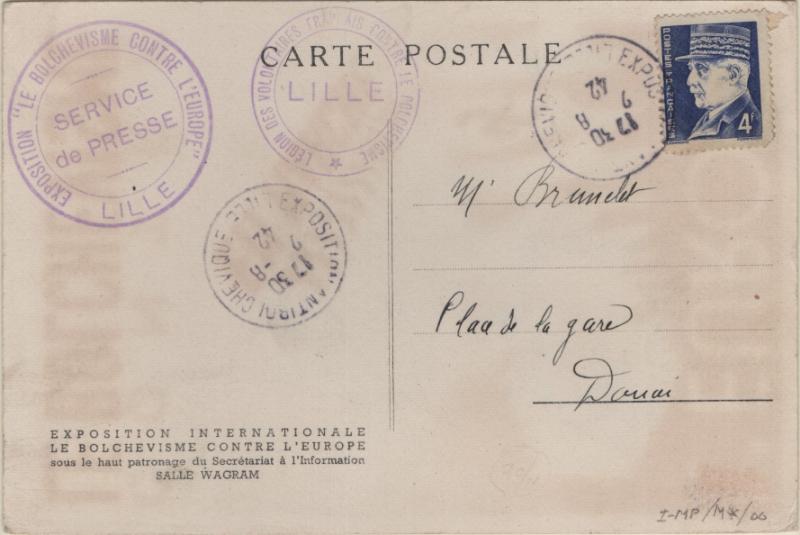 CARTE POSTALE
EXPOSITION "LE BOLCHEVISME CONTRE L'EUROPE"
SERVICE
de PRESSE
LILLE
LÉGION DES VOLONTAIRES FRANÇAIS CONTRE LE BOLCHEVISME
LILLE
EXPOSITION
17 30
8
2
42
POSTES FRANÇAISES
4F
LILLE EXPOSITION ANTIBOLCHEVIQUE
17 30
8
2
42
Mr Brunelet
Place de la gare
Douai
EXPOSITION INTERNATIONALE
LE BOLCHEVISME CONTRE L'EUROPE
sous le haut patronage du Secrétariat à l'Information
SALLE WAGRAM
I-MP/MX/00